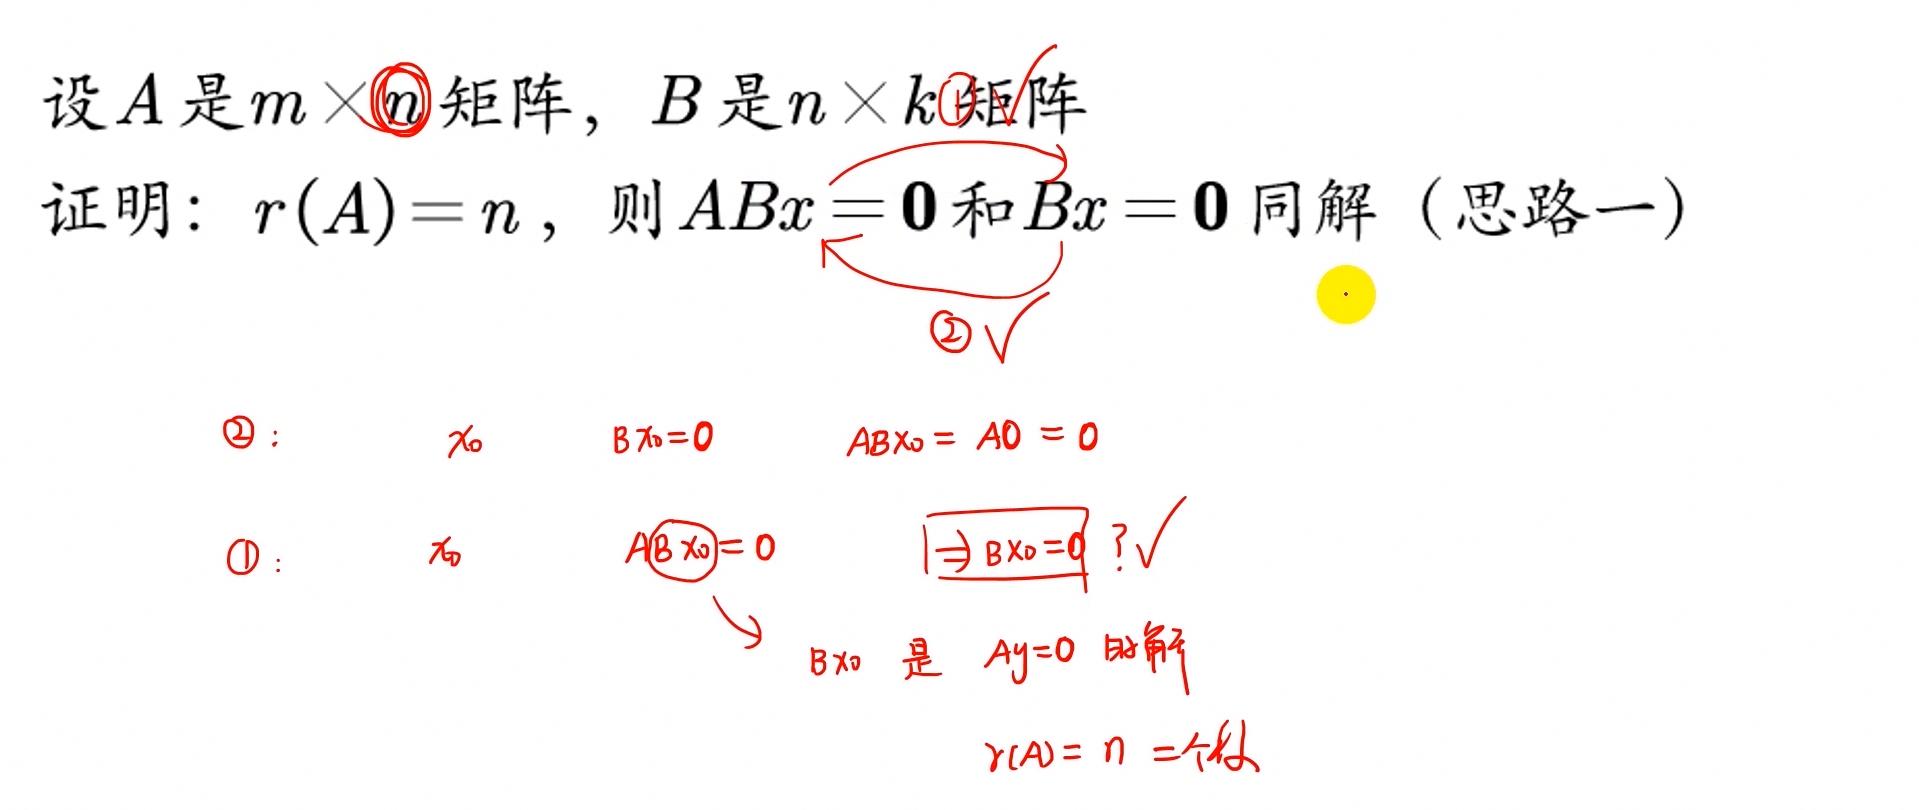 设A是m×n矩阵，B是n×k矩阵
①✓
证明：r(A)=n，则ABx=0和Bx=0同解（思路一）
②✓
②： x₀ Bx₀=0 ABx₀=A0=0
①： x₀ ABx₀=0 ⇒Bx₀=0？✓
Bx₀是Ay=0的解
r(A)=n=个数